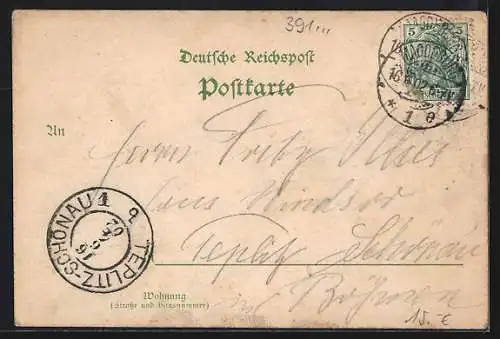 391...
Deutsche Reichspost
Postkarte
5
An
Herrn Fritz
Haus Windsor
Teplitz Schönau
in Böhmen
Wohnung
(Straße und Hausnummer)
TEPLITZ-SCHÖNAU 1
15.-€